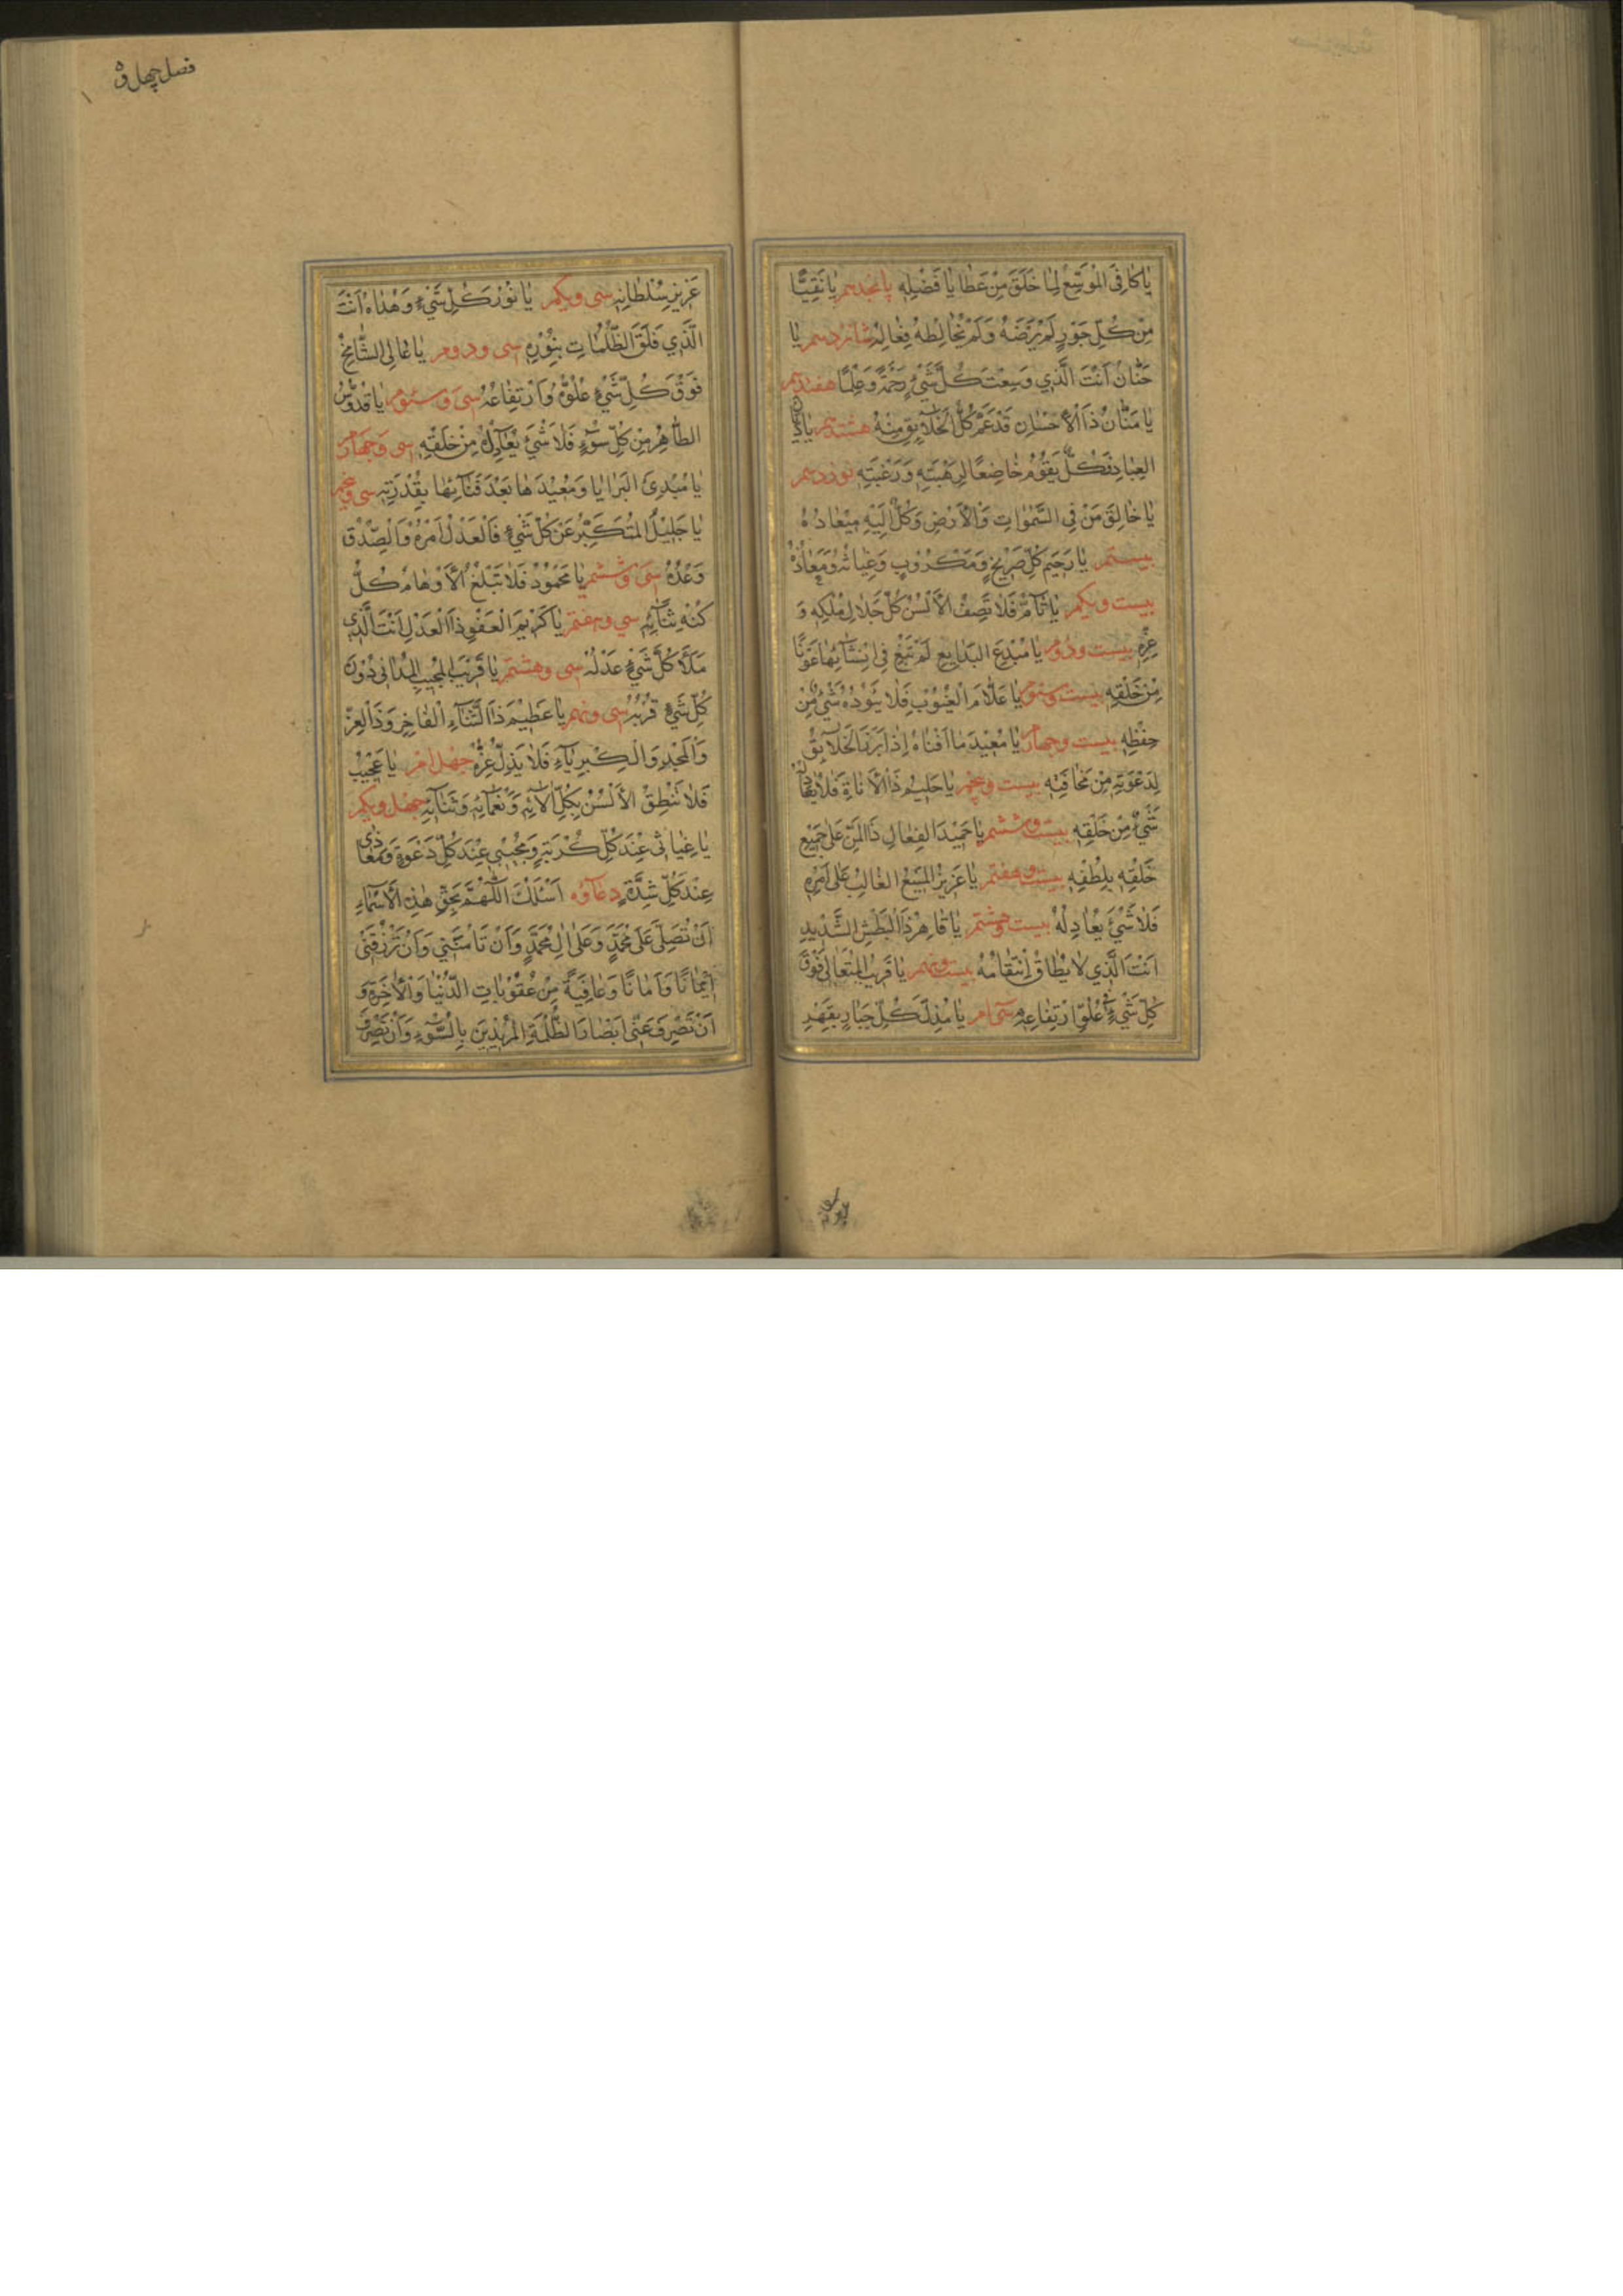 يٰا كٰافِيَ الْمُوَسِّعُ لِمٰا خَلَقَ مِنْ عَطٰايٰا فَضْلِهِ پانجدهم يٰا نَقِيًّا
مِنْ كُلِّ جَوْرٍ لَمْ يَرْضَهُ وَلَمْ يُخٰالِطْهُ فِعٰالُهُ شانزدهم يٰا
حَنّٰانُ اَنْتَ الَّذِي وَسِعْتَ كُلَّ شَيْءٍ رَحْمَةً وَعِلْمًا هفدهم
يٰا مَنّٰانُ ذَا الْاِحْسٰانِ قَدْ عَمَّ كُلَّ الْخَلٰائِقِ مِنْهُ هشتدهم يٰا دَيّٰانَ
العِبٰادِ فَكُلٌّ يَقُوْمُ خٰاضِعًا لِرَهْبَتِهِ وَرَغْبَتِهِ نوزدهم
يٰا خٰالِقَ مَنْ فِي السَّمٰوٰاتِ وَالْاَرْضِ وَكُلٌّ اِلَيْهِ مِيْعٰادُهُ
بيستم يٰا رَحِيْمَ كُلِّ صَرِيْخٍ وَمَكْرُوْبٍ وَغِيٰاثُهُ وَمَعٰاذُهُ
بيست ويكم يٰا تٰامُّ فَلٰا تَصِفُ الْاَلْسُنُ كُلَّ جَلٰالِ مُلْكِهِ وَ
عِزِّهِ بيست ودوم يٰا مُبْدِعَ البَدٰايِعِ لَمْ تَبْغِ فِي اِنْشٰائِهٰا عَوْنًا
مِنْ خَلْقِهِ بيست وسوم يٰا عَلّٰامَ الْغُيُوْبِ فَلٰا يَئُوْدُهُ شَيْءٌ مِنْ
حِفْظِهِ بيست وچهارم يٰا مُعِيْدَ مٰا اَفْنٰاهُ اِذٰا بَرَزَ الْخَلٰائِقُ
لِدَعْوَتِهِ مِنْ مَخٰافَتِهِ بيست وپنجم يٰا حَلِيْمُ ذَا الْاَنٰاةِ فَلٰا يُعٰادِلُهُ
شَيْءٌ مِنْ خَلْقِهِ بيست وششم يٰا حَمِيْدَ الفِعٰالِ ذَا المَنِّ عَلٰى جَمِيْعِ
خَلْقِهِ بِلُطْفِهِ بيست وهفتم يٰا عَزِيْزُ المَنِيْعُ الغٰالِبُ عَلٰى اَمْرِهِ
فَلٰا شَيْءَ يُعٰادِلُهُ بيست وهشتم يٰا قٰاهِرُ ذَا الْبَطْشِ الشَّدِيْدِ
اَنْتَ الَّذِي لٰا يُطٰاقُ اِنْتِقٰامُهُ بيست ونهم يٰا قَرِيْبُ الْمُتَعٰالِي فَوْقَ
كُلِّ شَيْءٍ فِي عُلُوِّ ارْتِفٰاعِهِ سى ام يٰا مُذِلَّ كُلِّ جَبّٰارٍ بِقَهْرِ
فصل چهل و
عَزِيْزِ سُلْطٰانِهِ سى ويكم يٰا نُوْرَ كُلِّ شَيْءٍ وَهُدٰاهُ اَنْتَ
الَّذِي فَلَقَ الظُّلُمٰاتِ بِنُوْرِهِ سى ودوم يٰا عٰالِي الشّٰامِخُ
فَوْقَ كُلِّ شَيْءٍ عُلُوُّهُ وَارْتِفٰاعُهُ سى وسوم يٰا قُدُّوْسُ
الطّٰاهِرُ مِنْ كُلِّ سُوْءٍ فَلٰا شَيْءَ يُعٰادِلُهُ مِنْ خَلْقِهِ سى وچهارم
يٰا مُبْدِئَ البَرٰايٰا وَمُعِيْدَهٰا بَعْدَ فَنٰائِهٰا بِقُدْرَتِهِ سى وپنجم
يٰا جَلِيْلُ المُتَكَبِّرُ عَنْ كُلِّ شَيْءٍ فَالْعَدْلُ اَمْرُهُ وَالْصِّدْقُ
وَعْدُهُ سى وششم يٰا مَحْمُوْدُ فَلٰا تَبْلُغُ الْاَوْهٰامُ كُلَّ
كُنْهِ ثَنٰائِهِ سى وهفتم يٰا كَرِيْمَ الْعَفْوِ ذَا الْعَدْلِ اَنْتَ الَّذِي
مَلَأَ كُلَّ شَيْءٍ عَدْلُهُ سى وهشتم يٰا قَرِيْبُ الْمُجِيْبُ المُدٰانِي دُوْنَ
كُلِّ شَيْءٍ قُرْبُهُ سى ونهم يٰا عَظِيْمُ ذَا الثَّنٰاءِ الْفٰاخِرِ وَذَا الْعِزِّ
وَالْمَجْدِ وَالْكِبْرِيٰاءِ فَلٰا يَذِلُّ عِزُّهُ چهل ام يٰا عَجِيْبُ
فَلٰا تَنْطِقُ الْاَلْسُنُ بِكُلِّ اٰلٰائِهِ وَنَعْمٰائِهِ وَثَنٰائِهِ چهل ويكم
يٰا غِيٰاثِي عِنْدَ كُلِّ كُرْبَةٍ وَمُجِيْبِي عِنْدَ كُلِّ دَعْوَةٍ وَمَعٰاذِي
عِنْدَ كُلِّ شِدَّةٍ دعاؤه اَسْئَلُكَ اللّٰهُمَّ بِحَقِّ هٰذِهِ الْاَسْمٰاءِ
اَنْ تُصَلِّيَ عَلٰى مُحَمَّدٍ وَعَلٰى اٰلِ مُحَمَّدٍ وَاَنْ تَاْمَنَنِي وَاَنْ تَرْزُقَنِي
اِيْمٰانًا وَاَمٰانًا وَعٰافِيَةً مِنْ عُقُوْبٰاتِ الدُّنْيٰا وَالْاٰخِرَةِ وَ
اَنْ تَصْرِفَ عَنِّي اَبْصٰارَ الظَّلَمَةِ المُرِيْدِيْنَ بِيَ السُّوْءَ وَاَنْ تَصْرِفَ